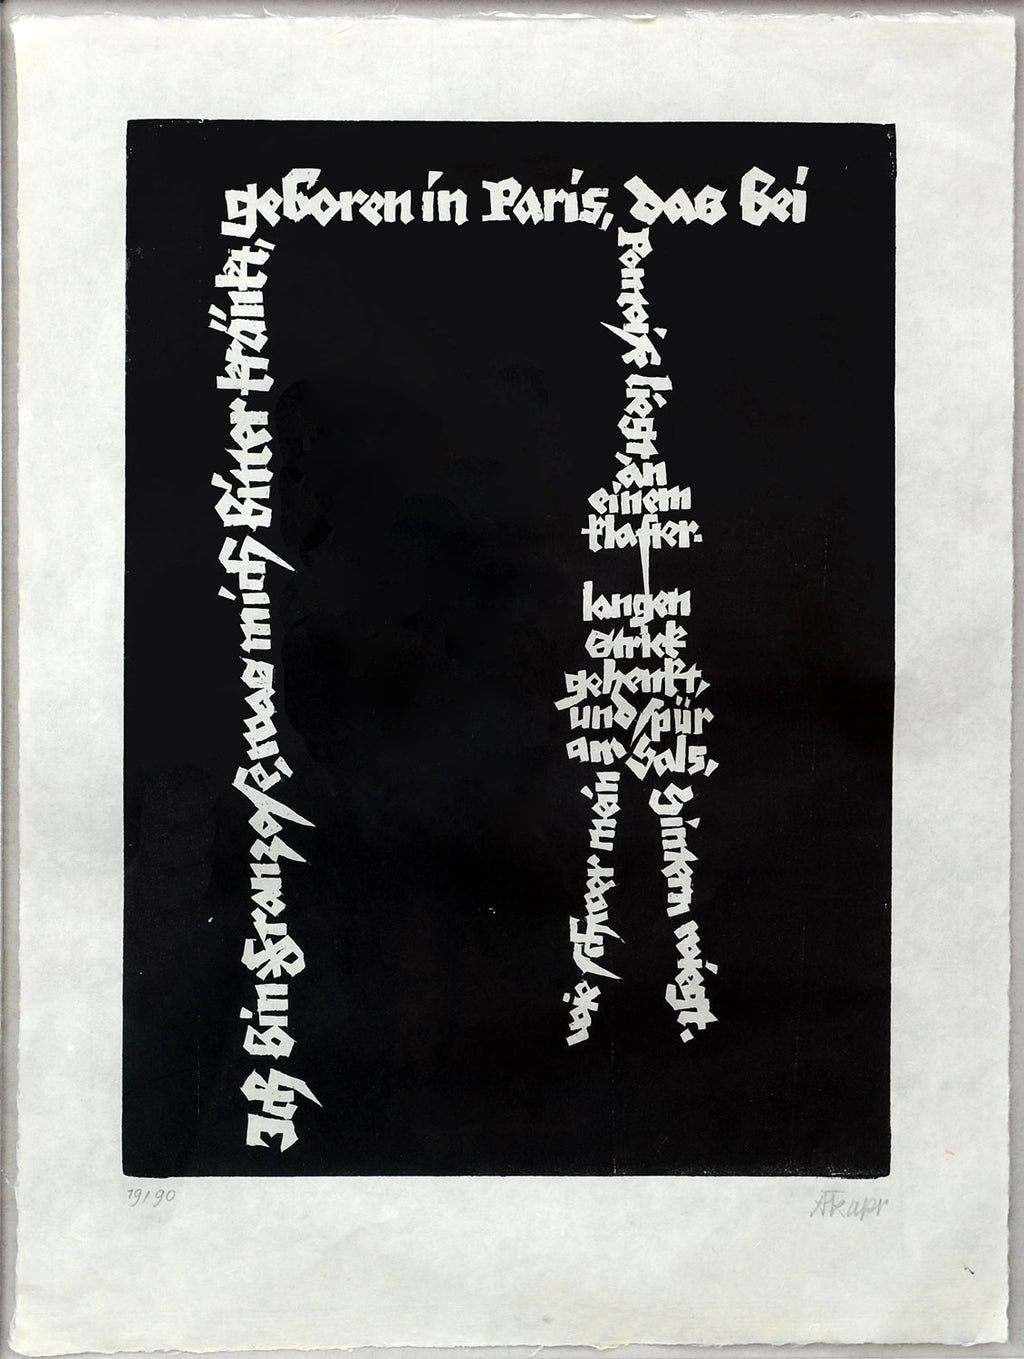 Ich bin Franzose, was mich bitter kränkt,
geboren in Paris, das bei
Pontoise liegt,
an
einem
klafter-
langen
Strick
gehenkt,
und spür
am Hals,
wie schwer mein
Hintern wiegt.
19/90
AKapr